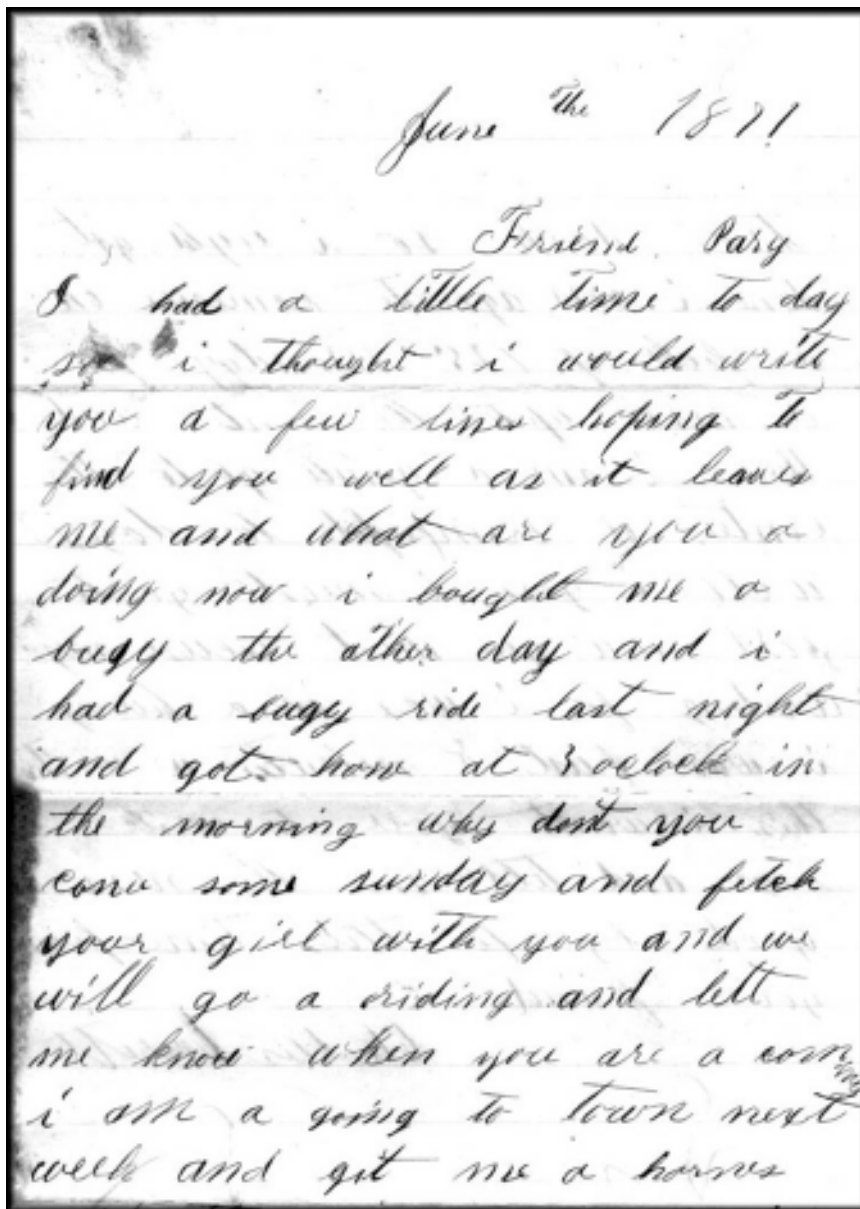 June the 1871
Friend. Pary
I had a little time to day
so i thought i would write
you a few lines hoping to
find you well as it leaves
me and what are you a
doing now i bought me a
bugy the other day and i
had a bugy ride last night
and got home at 3 oclock in
the morning why dont you
come some sunday and fetch
your girl with you and we
will go a riding and lett
me know when you are a coming
i am a going to town next
week and git me a harnes